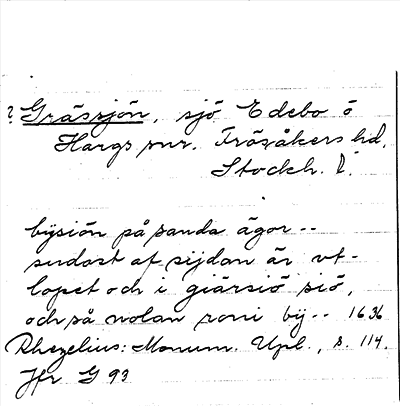 ? Grässjön, sjö Edebo ö
Hargs snr. Frösåkers hd.
Stockh. l.
bysiön på sanda ägor --
sudost af sijdan är vt-
lopet och i giärsiö siö,
och så nolan roni bij -- 1636
Rhezelius: Monum. Upl., s. 114.
Jfr G 93